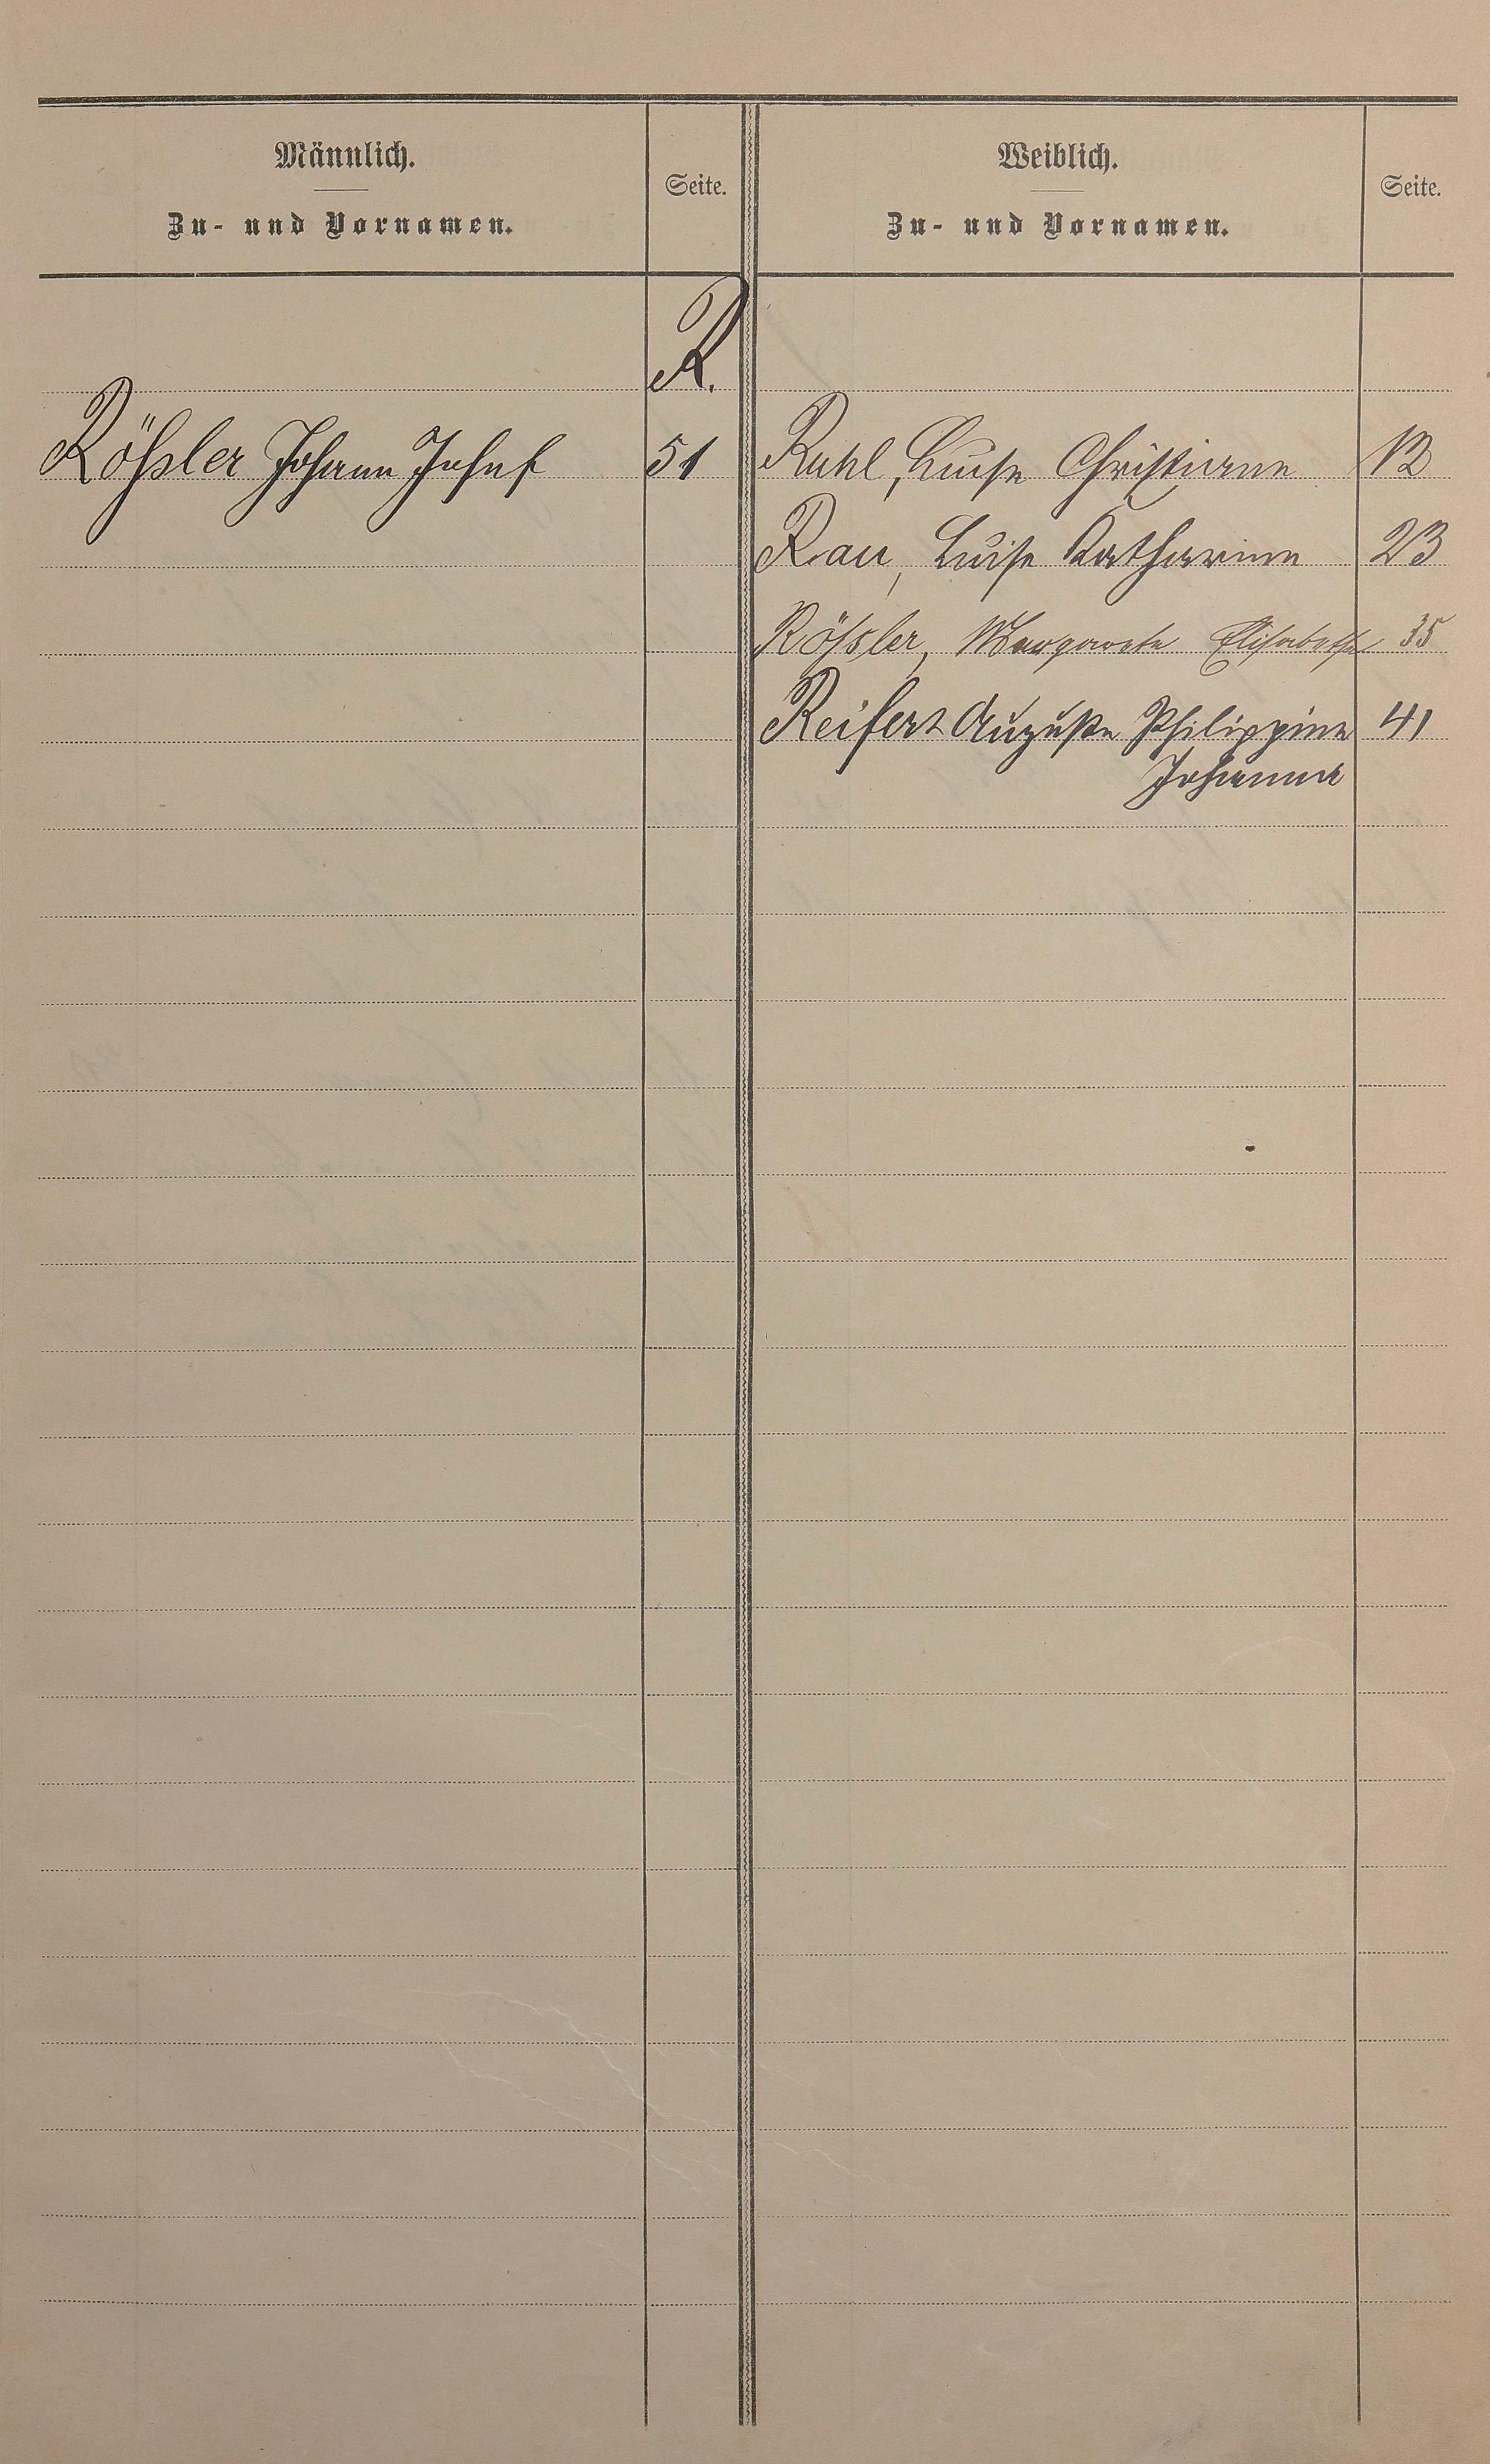 Männlich.
Zu- und Vornamen.
Seite.
Weiblich.
Zu- und Vornamen.
Seite.
R.
Rößler Johann Josef 51
Ruhl, Luise Christiane 12
Rau, Luise Katharine 23
Rößler, Margarete Elisabethe 35
Reifert Auguste Philippine 41
Johanna